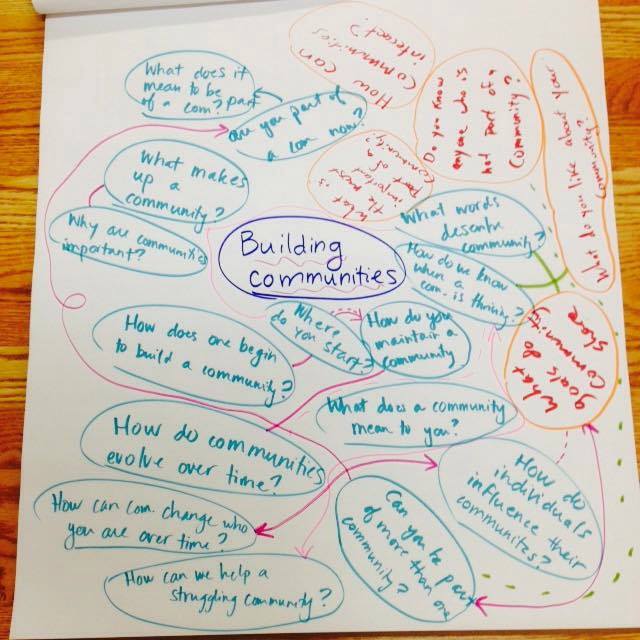 What does it
mean to be part
of a com?
are you part of
a com now?
How can
communities
interact?
Do you know
anyone who is
not part of a
community?
What do you like about your
community?
What makes
up a
community?
What is
the most
important
part of a
community?
Why are communities
important?
Building
communities
What words
describe
community?
How do we know
when a
com. is thriving?
How does one begin
to build a
community?
Where
do you
start?
How do you
maintain a
community
What
goals do
communities
share
What does a community
mean to you?
How do communities
evolve over time?
How do
individuals
influence their
communities?
How can com. change who
you are over time?
Can you be part
of more than one
community?
How can we help a
struggling community?